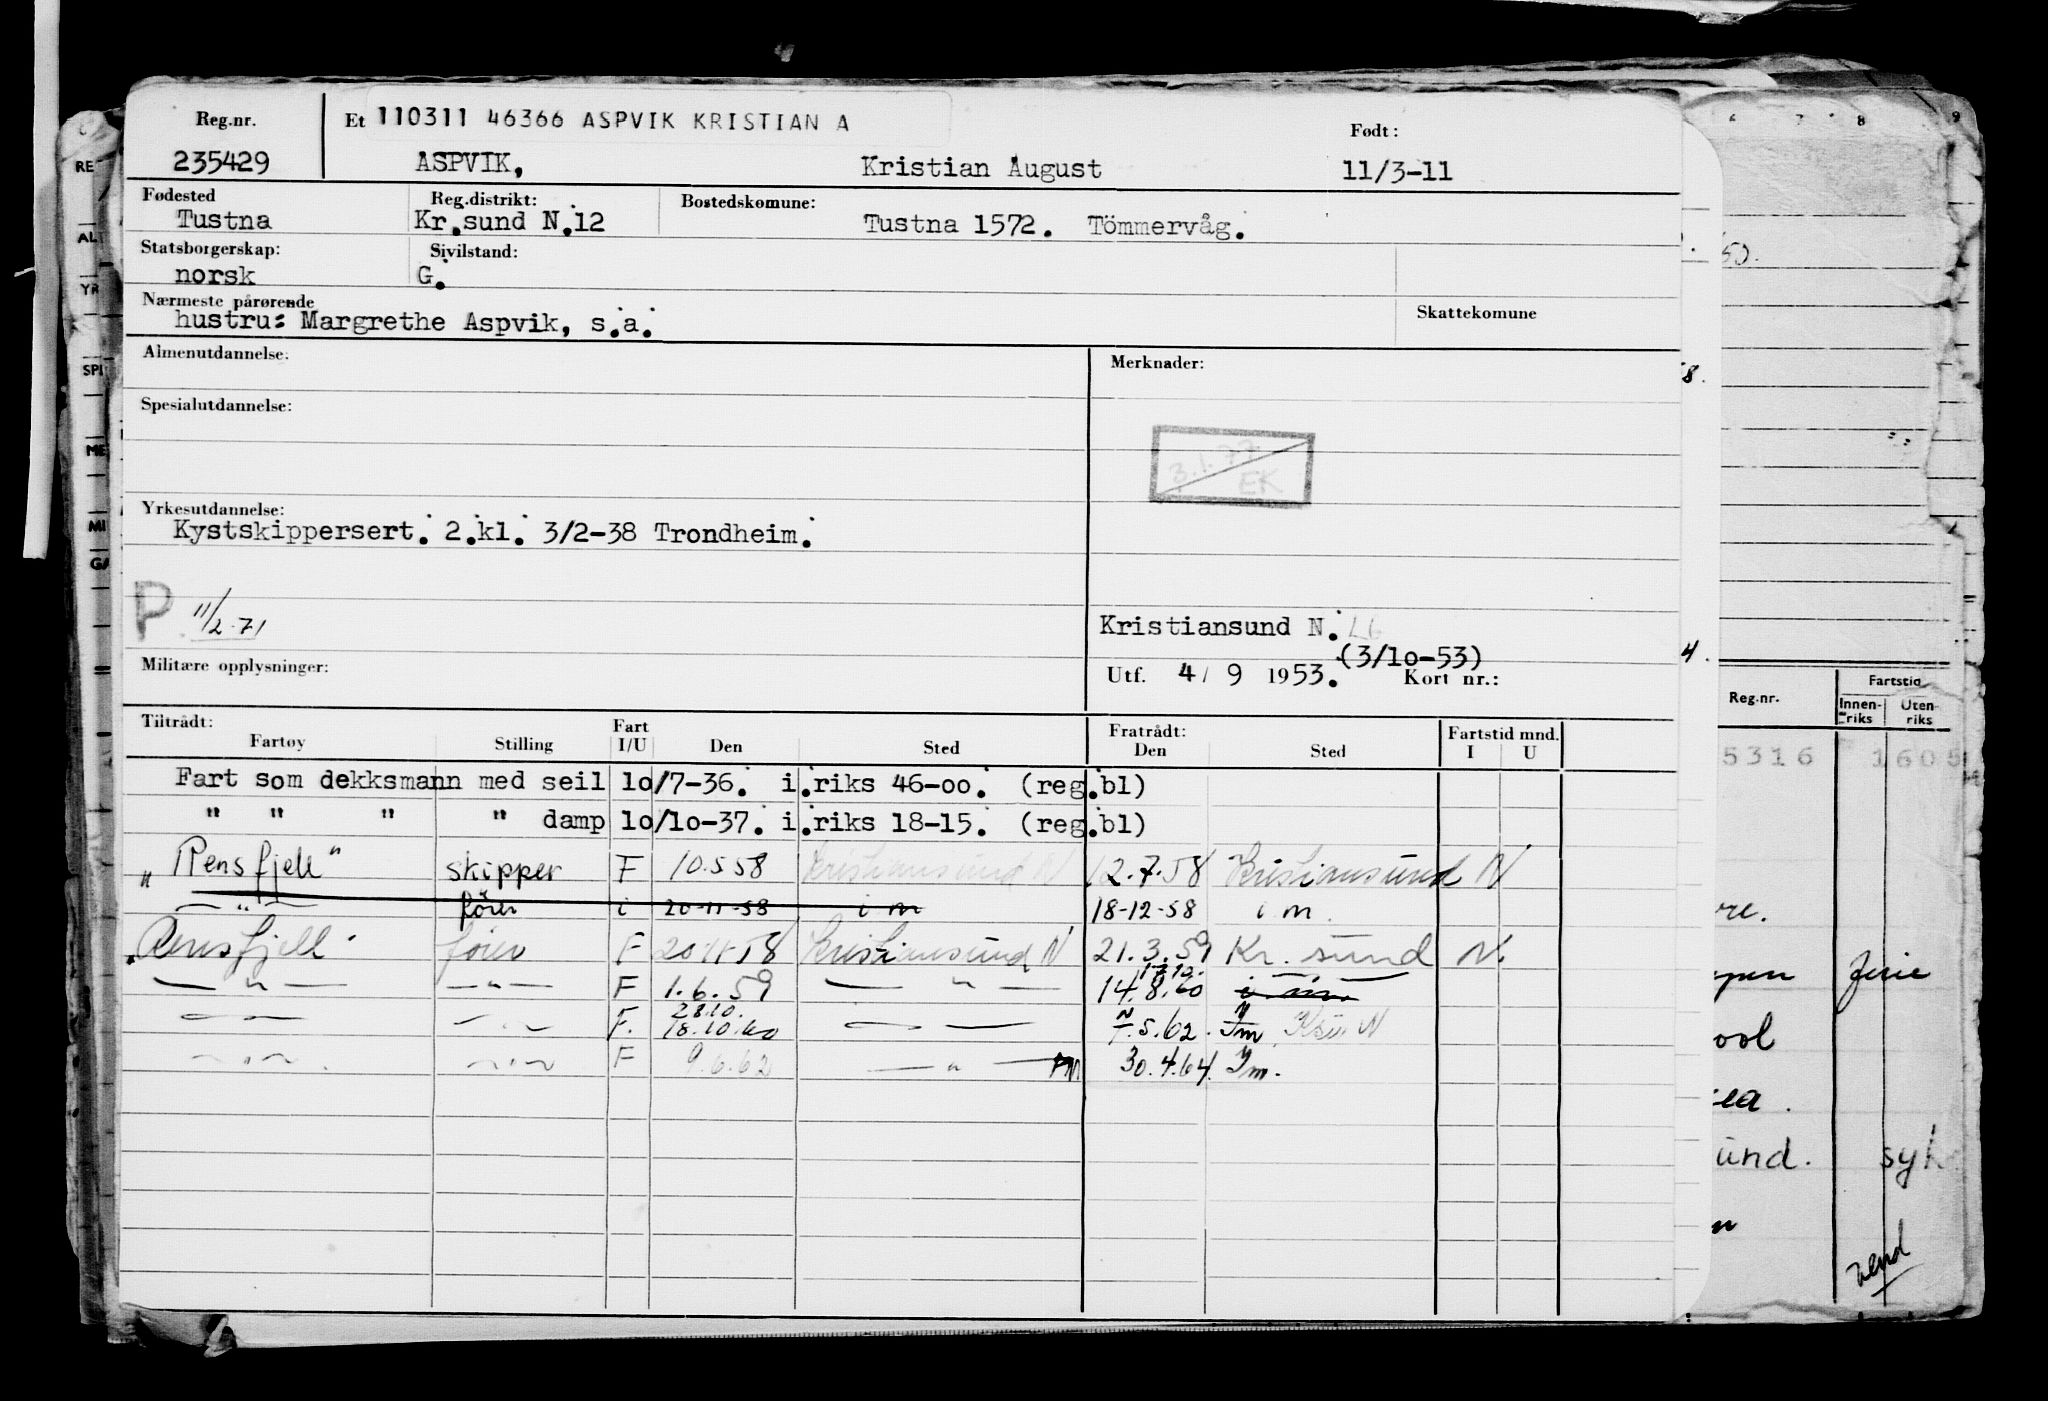 Reg.nr. Et 110311 46366 ASPVIK KRISTIAN A Født:
235429 ASPVIK, Kristian August 11/3-11
Fødested Reg.distrikt: Bostedskomune:
Tustna Kr.sund N.12 Tustna 1572. Tömmervåg.
Statsborgerskap: Sivilstand:
norsk G.
Nærmeste pårørende Skattekomune
hustru: Margrethe Aspvik, s.a.
Almenutdannelse: Merknader:
Spesialutdannelse:
3.1.77
EK
Yrkesutdannelse:
Kystskippersert. 2.kl. 3/2-38 Trondheim.
P. 11/2-71
Kristiansund N.
(3/10-53)
Militære opplysninger: Utf. 4/ 9 1953. Kort nr.:
Tiltrådt: Fart Fratrådt: Fartstid mnd.
Fartøy Stilling I/U Den Sted Den Sted I U
Fart som dekksmann med seil lo/7-36. i.riks 46-oo. (reg.bl)
" " " " damp lo/lo-37. i.riks 18-15. (reg.bl)
"Rensfjell" skipper F 10.5.58 Kristiansund N 12.7.58 Kristiansund N
— " — fører i 20-11-58 i m 18-12-58 i m.
"Rensfjell" fører F 20.11.58 Kristiansund N 21.3.59 Kr. sund N.
— " — — " — F 1.6.59 — " — 17.12.
14.8.60 i m
28.10.
F. 18.10.60 5.62. Ym Ksu N
— " — — " — F 9.6.62 — " — 30.4.64. Ym.
RE
AL
YR
SPI
ME
MI
GA
6 7 8 9
50.
8.
4.
Reg.nr. Fartstid
Innenriks Utenriks
5316 1605
re.
ool
ea.
sund. syk
vend